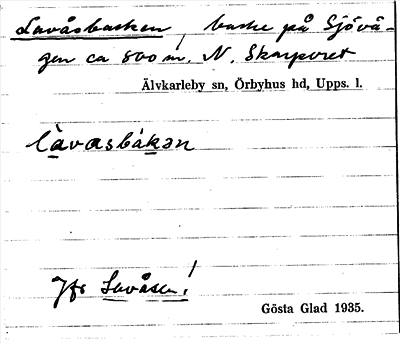 Lavåsbacken, backe på Sjövä-
gen ca 800 m. N. Skarpvret
Älvkarleby sn, Örbyhus hd, Upps. l.
làvasbákən
Jfr Lavåsen!
Gösta Glad 1935.